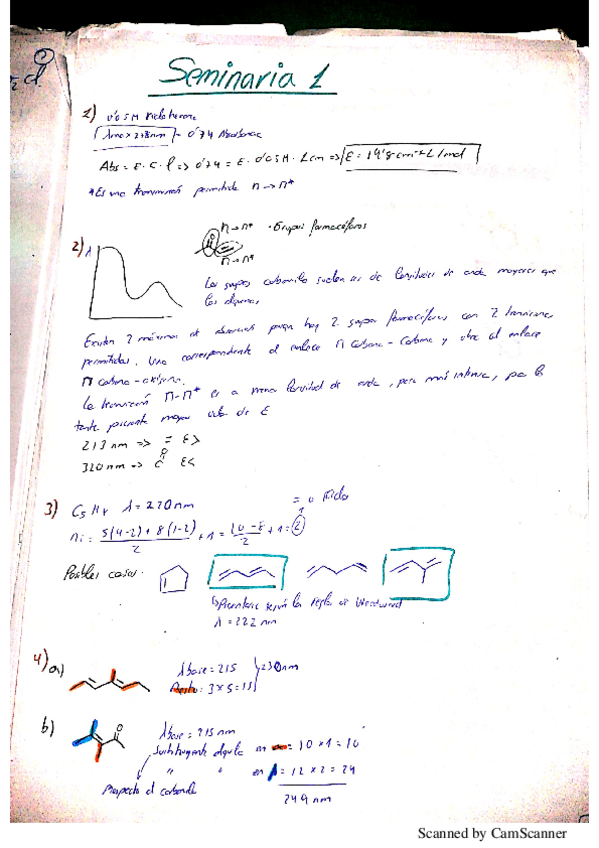 Seminario 1
1) 0'05M
λmax 218nm - 0'74
Abs = ε·C·l => 0'74 = ε · 0'05M · 1cm => ε = 14'8 cm⁻¹ L/mol
*Es una transición permitida π → π*
n → π* · Grupos
2) λ
π → π*
Los grupos carbonilo suelen de longitudes de onda mayores que
los alquenos
Existen 2 máximos de porque hay 2 grupos con 2 transiciones
permitidas. Una correspondiente al enlace π carbono - carbono y otra al enlace
π carbono - oxígeno.
La transición π-π* es a menor longitud de onda, pero más intensa, por lo
tanto presenta mayor valor de ε
213 nm => = ε>
320 nm => O C ε<
3) C5H8 λ = 220nm
= o ciclo
ni = 5(4-2) + 8(1-2) / 2 + 1 = 10-8 / 2 + 1 = 2
Posibles casos:
según la regla de Woodward
λ = 222 nm
4) a)
λ base = 215
Resto: 3 x 5 = 15
230nm
b)
O
λ base = 215 nm
Sustituyente alquilo en = 10 x 1 = 10
" " en = 12 x 2 = 24
Respecto al carbonilo
249 nm
Scanned by CamScanner